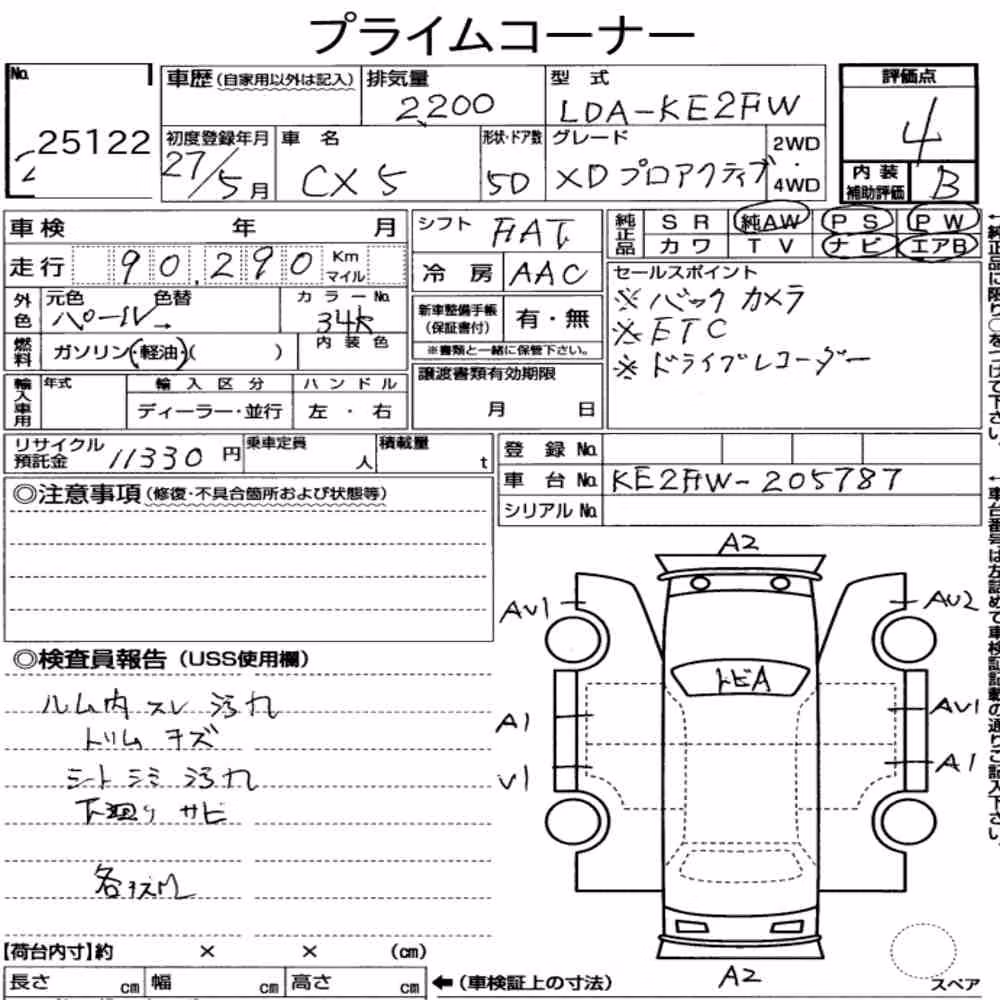 プライムコーナー
No. 25122
車歴 (自家用以外は記入)
排気量 2200
型式 LDA-KE2FW
評価点 4
初度登録年月 27/5月
車名 CX5
形状・ドア数 5D
グレード XDプロアクティブ
2WD・4WD
内装補助評価 B
車検 年 月
シフト FAT
純正品 SR 純AW PS PW
カワ TV ナビ エアB
走行 90,290 Km マイル
冷房 AAC
セールスポイント
※バックカメラ
※ETC
※ドライブレコーダー
外色 元色 パール→ 色替
カラーNo. 34K
新車整備手帳(保証書付) 有・無
※書類と一緒に保管下さい。
燃料 ガソリン・軽油・( )
内装色
輸入車用 年式 輸入区分 ハンドル
ディーラー・並行 左・右
譲渡書類有効期限
月 日
リサイクル預託金 11330円
乗車定員 人
積載量 t
登録No.
車台No. KE2FW-205787
シリアルNo.
◎注意事項(修復・不具合箇所および状態等)
◎検査員報告(USS使用欄)
ルーム内 スレ 汚れ
トリム キズ
シート シミ 汚れ
下廻り サビ
A2
AV1
AV2
トビA
A1
AV1
V1
A1
A2
スペア
【荷台内寸】約 × × (cm)
長さ cm 幅 cm 高さ cm
←(車検証上の寸法)
←純正品に限り○をつけて下さい。
←車台番号は左詰めで車検証記載の通りご記入下さい。